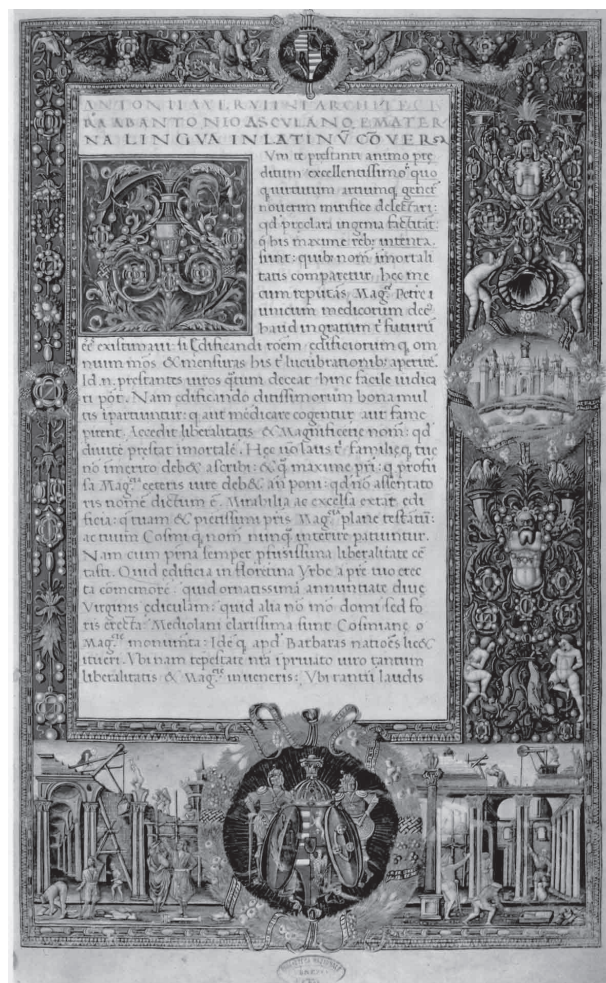 ANTONII AVERVLINI ARCHITECT
RA AB ANTONIO ASCVLANO E MATER
NA LINGVA IN LATINṼ CÕVERSA
Vm te prestanti animo pre
ditum excellentissimoq̨ quo
q̨ uirtutum artiumq̨ genere
nouerim mirifice delectari:
qd preclara ingenia factitãt
q̨ his maxime rebꝰ intenta
sunt: quibꝰ nom̃ imortali
tatis comparetur: hec me
cum reputãs Mag. Petre
unicum medicorum decꝰ
haud ingratum t̃ futurũ
ẽẽ existimaui: si Edificandi rõem edificiorum q̨ om
nium mõs & mensuras his t̃ lucubrationibꝰ aperirẽ.
Id .n. prestantes uiros q̃tum deceat: hinc facile iudica
ri põt. Nam edificando ditissimorum bona mul
tis ipartiuntur: q̨ aut mẽdicare cogentur aut fame
perirent. Accedit liberalitatis & Magnificẽtie nom̃: qd
diuitẽ prestat imortalẽ. Hec uõ laus t̃ familieq̨ tue
nõ imerito debet ascribi: & q̃ maxime pri: q̨ profu
sa Mag. ceteris iure debet aũ poni: qd nõ assentato
ris nomẽ dictum ẽ. Mirabilia ac excelsa extãt edi
ficia: q̨ tuam & pietissimi pris Mag. plane testatũ:
ac tuum Cosmi q̨ nom̃ nunq̃ interire patiuntur.
Nam cum prña semper pfusissima liberalitate cẽ
tasti. Quid edificia in florẽtina Vrbe a pre tuo erec
ta comemorẽ: quid ornatissimã annuntiate diue
Virginis ediculam: quid alia nõ mõ domi sed fo
ris erecta. Mediolani clarissima sunt Cosmiane
Mag. monumta: Idẽ q̨ apd Barbaras natiões licet
itueri. Vbi nam tepestate nrã i priuato uiro tantum
liberalitatis & Mag. inueneris: Vbi tantũ laudis